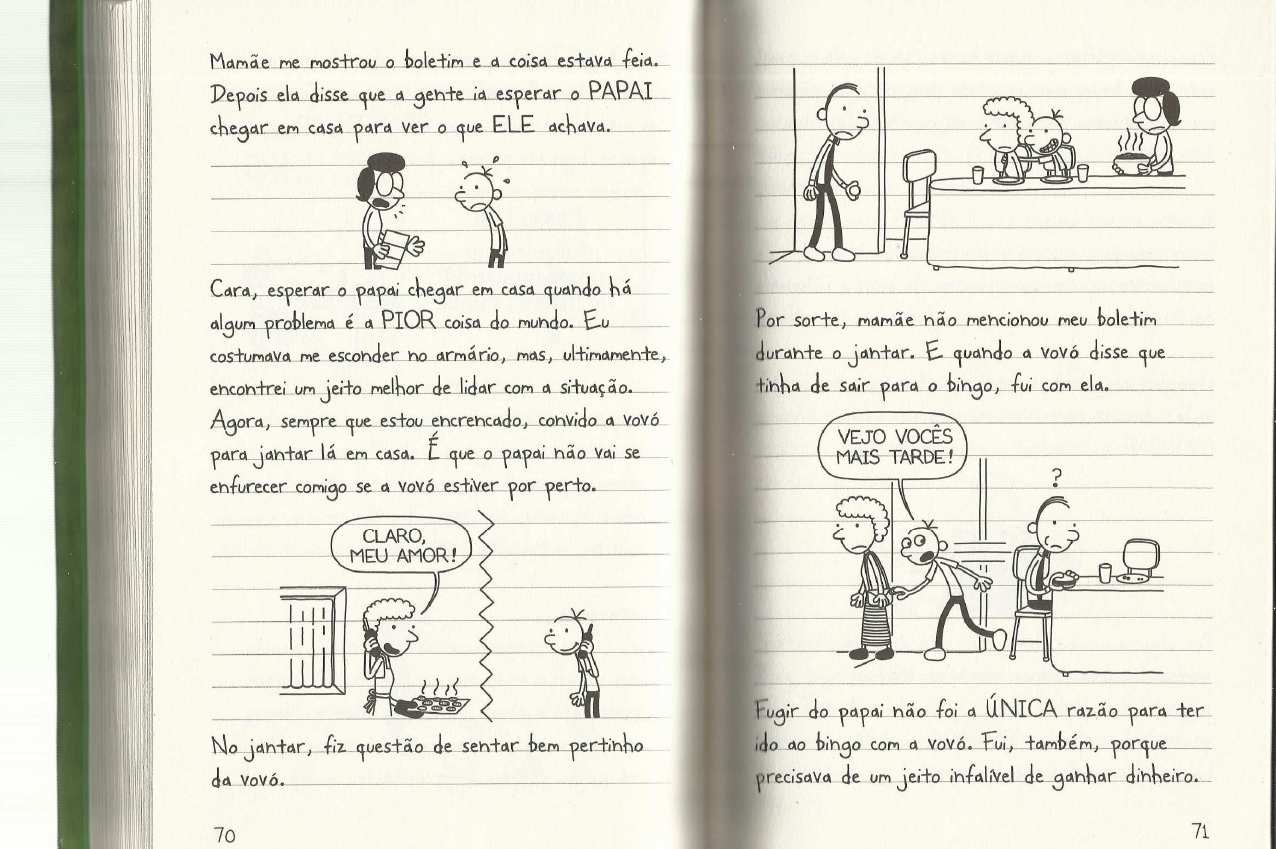 Mamãe me mostrou o boletim e a coisa estava feia.
Depois ela disse que a gente ia esperar o PAPAI
chegar em casa para ver o que ELE achava.
Cara, esperar o papai chegar em casa quando há
algum problema é a PIOR coisa do mundo. Eu
costumava me esconder no armário, mas, ultimamente,
encontrei um jeito melhor de lidar com a situação.
Agora, sempre que estou encrencado, convido a vovó
para jantar lá em casa. É que o papai não vai se
enfurecer comigo se a vovó estiver por perto.
CLARO,
MEU AMOR!
No jantar, fiz questão de sentar bem pertinho
da vovó.
70
Por sorte, mamãe não mencionou meu boletim
durante o jantar. E quando a vovó disse que
tinha de sair para o bingo, fui com ela.
VEJO VOCÊS
MAIS TARDE!
?
Fugir do papai não foi a ÚNICA razão para ter
ido ao bingo com a vovó. Fui, também, porque
precisava de um jeito infalível de ganhar dinheiro.
71